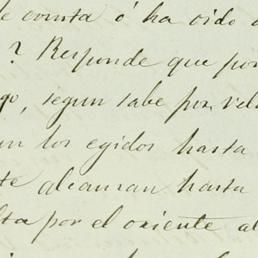 le consta ó ha oido
? Responde que por
go, segun sabe por
los egidos hasta
te alcansan hasta
por el oriente al